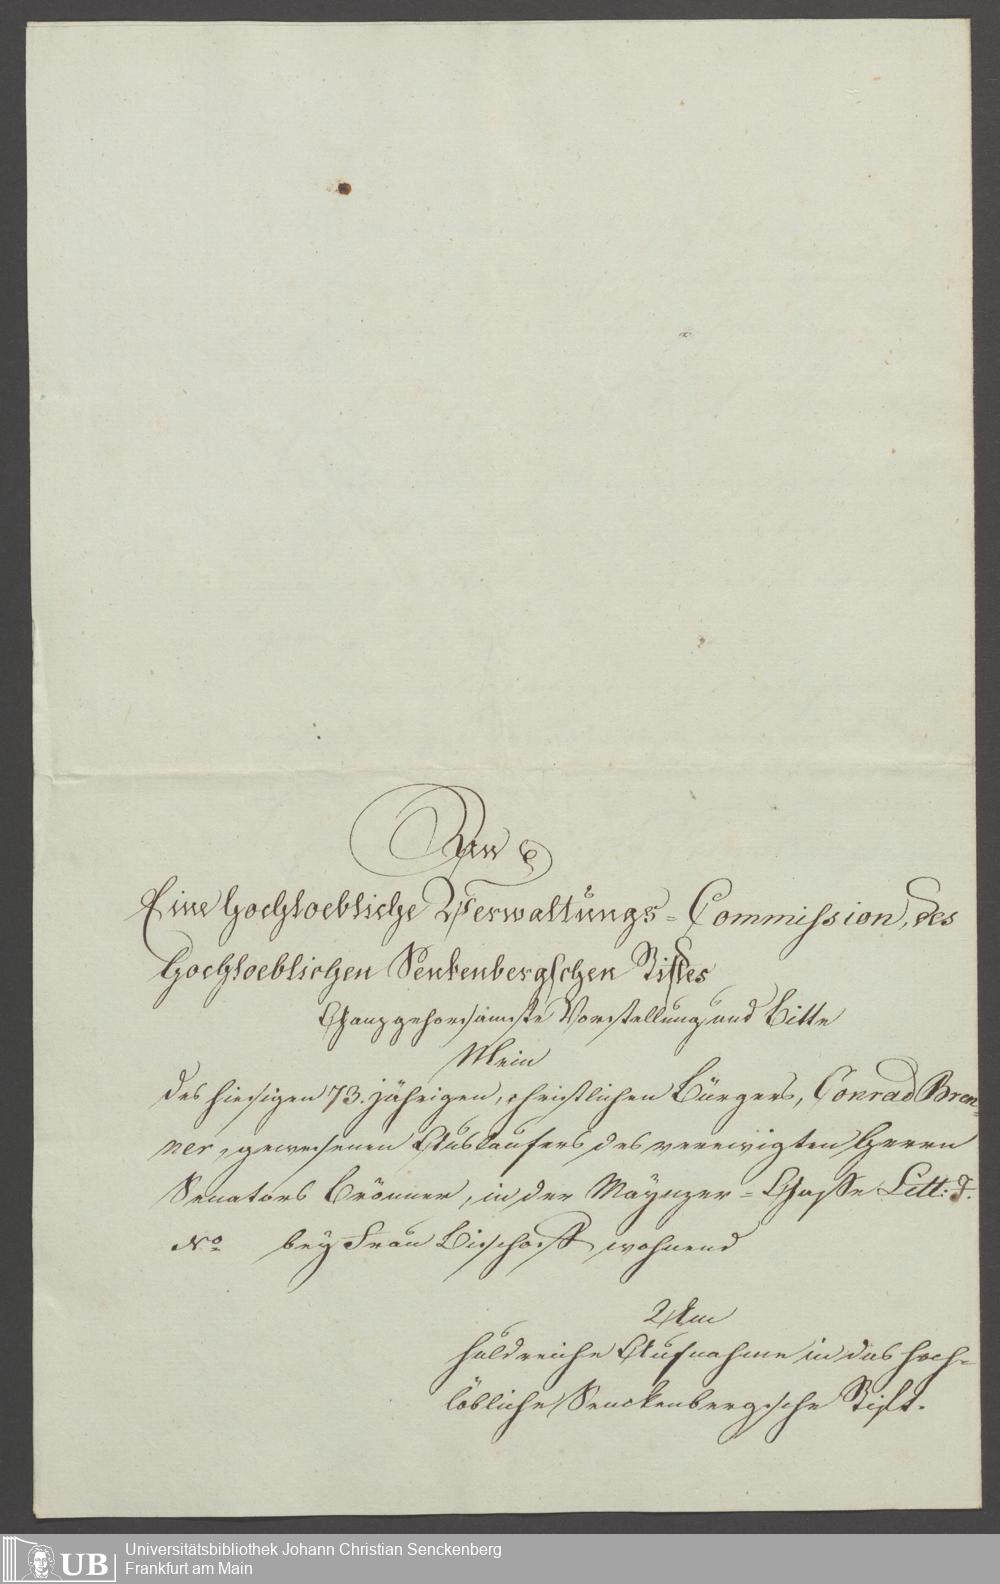 An
Eine Hochloebliche Verwaltungs-Commission, des
Hochloeblichen Senkenbergschen Stiftes
Ganz gehorsamste Vorstellung und Bitte
Mein
des hiesigen 73. jährigen, christlichen Bürgers, Conrad Bren-
ner, gewesenen Auslaufers des verewigten Herrn
Senators Brönner, in der Maynzer-Gasse Litt: J.
No bey Frau Bischoff wohnend
Um
huldreiche Aufnahme in das hoch-
löbliche Senckenbergsche Stift.
UB
Universitätsbibliothek Johann Christian Senckenberg
Frankfurt am Main